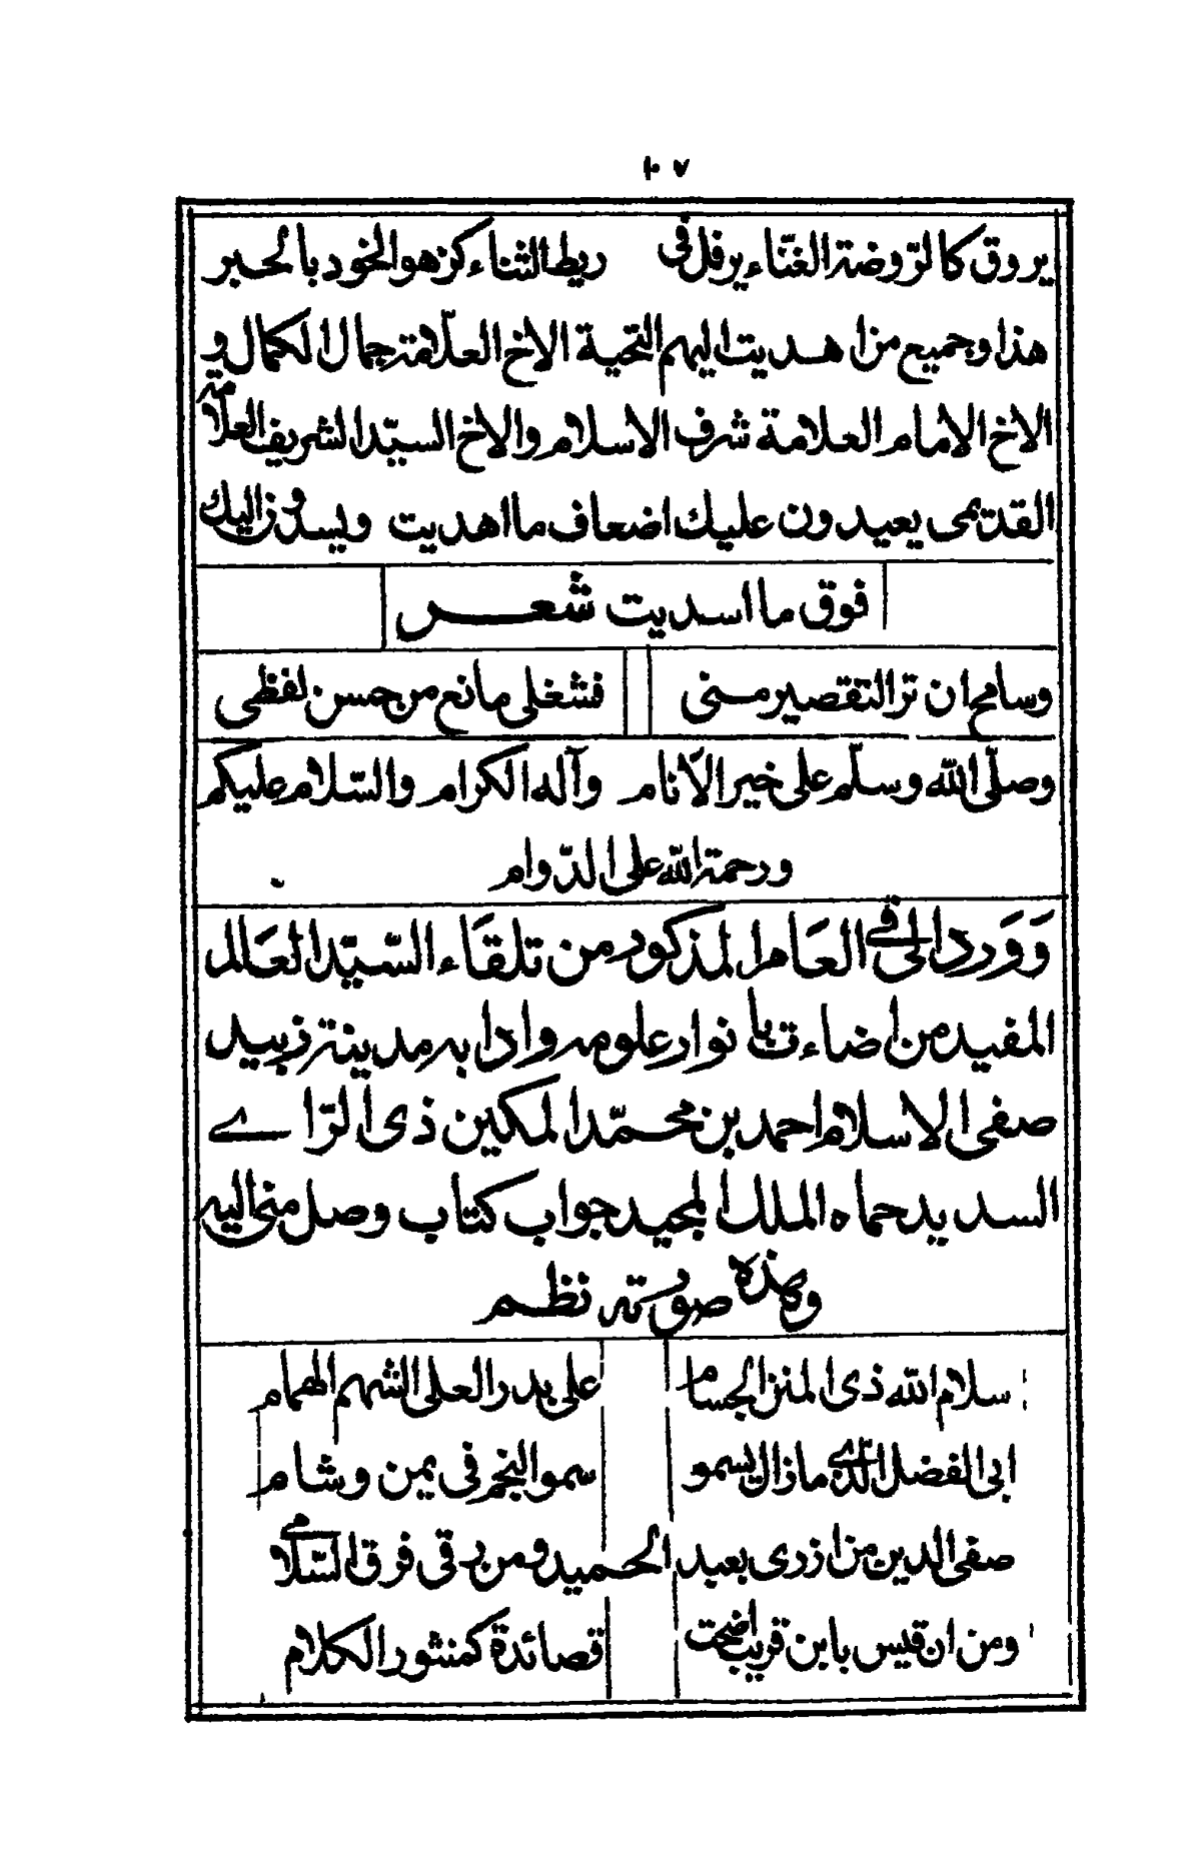 ١٠٧
يروق كالرّوضة الغنّاء يرفل فى ريط الثناء كزهو الخود بالحبر
هذا وجميع من اهديت اليهم التحية الاخ العلّامة جمال الكمال و
الاخ الامام العلامة شرف الاسلام والاخ السيّد الشريف العلّامة
القديمى يعيدون عليك اضعاف ما اهديت ويسدون اليك
فوق ما اسديت شعر
وسامح ان تر التقصير منى فشغلى مانع من حسن لفظى
وصلّى اللّٰه وسلّم على خير الانام وآله الكرام والسّلام عليكم
ورحمة اللّٰه على الدّوام
وَوَرد الىّ فى العَام المذكور من تلقَاء السّيّد العَالم
المفيد من اضاءت بانوار علومه وادابه مدينة زبيد
صفى الاسلام احمد بن محمّد المكين ذى الرّاے
السديد حماه الملك المجيد جواب كتاب وصل منى اليه
وهٰذه صورته نظم
سلام اللّٰه ذى المنن الجسام على بدر العلى الشهم الهمام
ابى الفضل الّذے مازال يسمو سمو النجم فى يمن وشام
صفى الدين من ازرى بعبد الحميد ومن رقى فرق السّلامى
ومن ان قيس بابن قريب اضحت قصائدة كمنثور الكلام